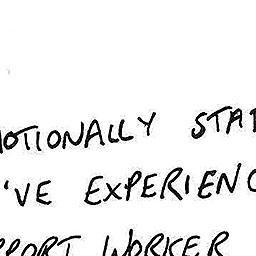 MOTIONALLY STAB
'VE EXPERIENC
PPORT WORKER